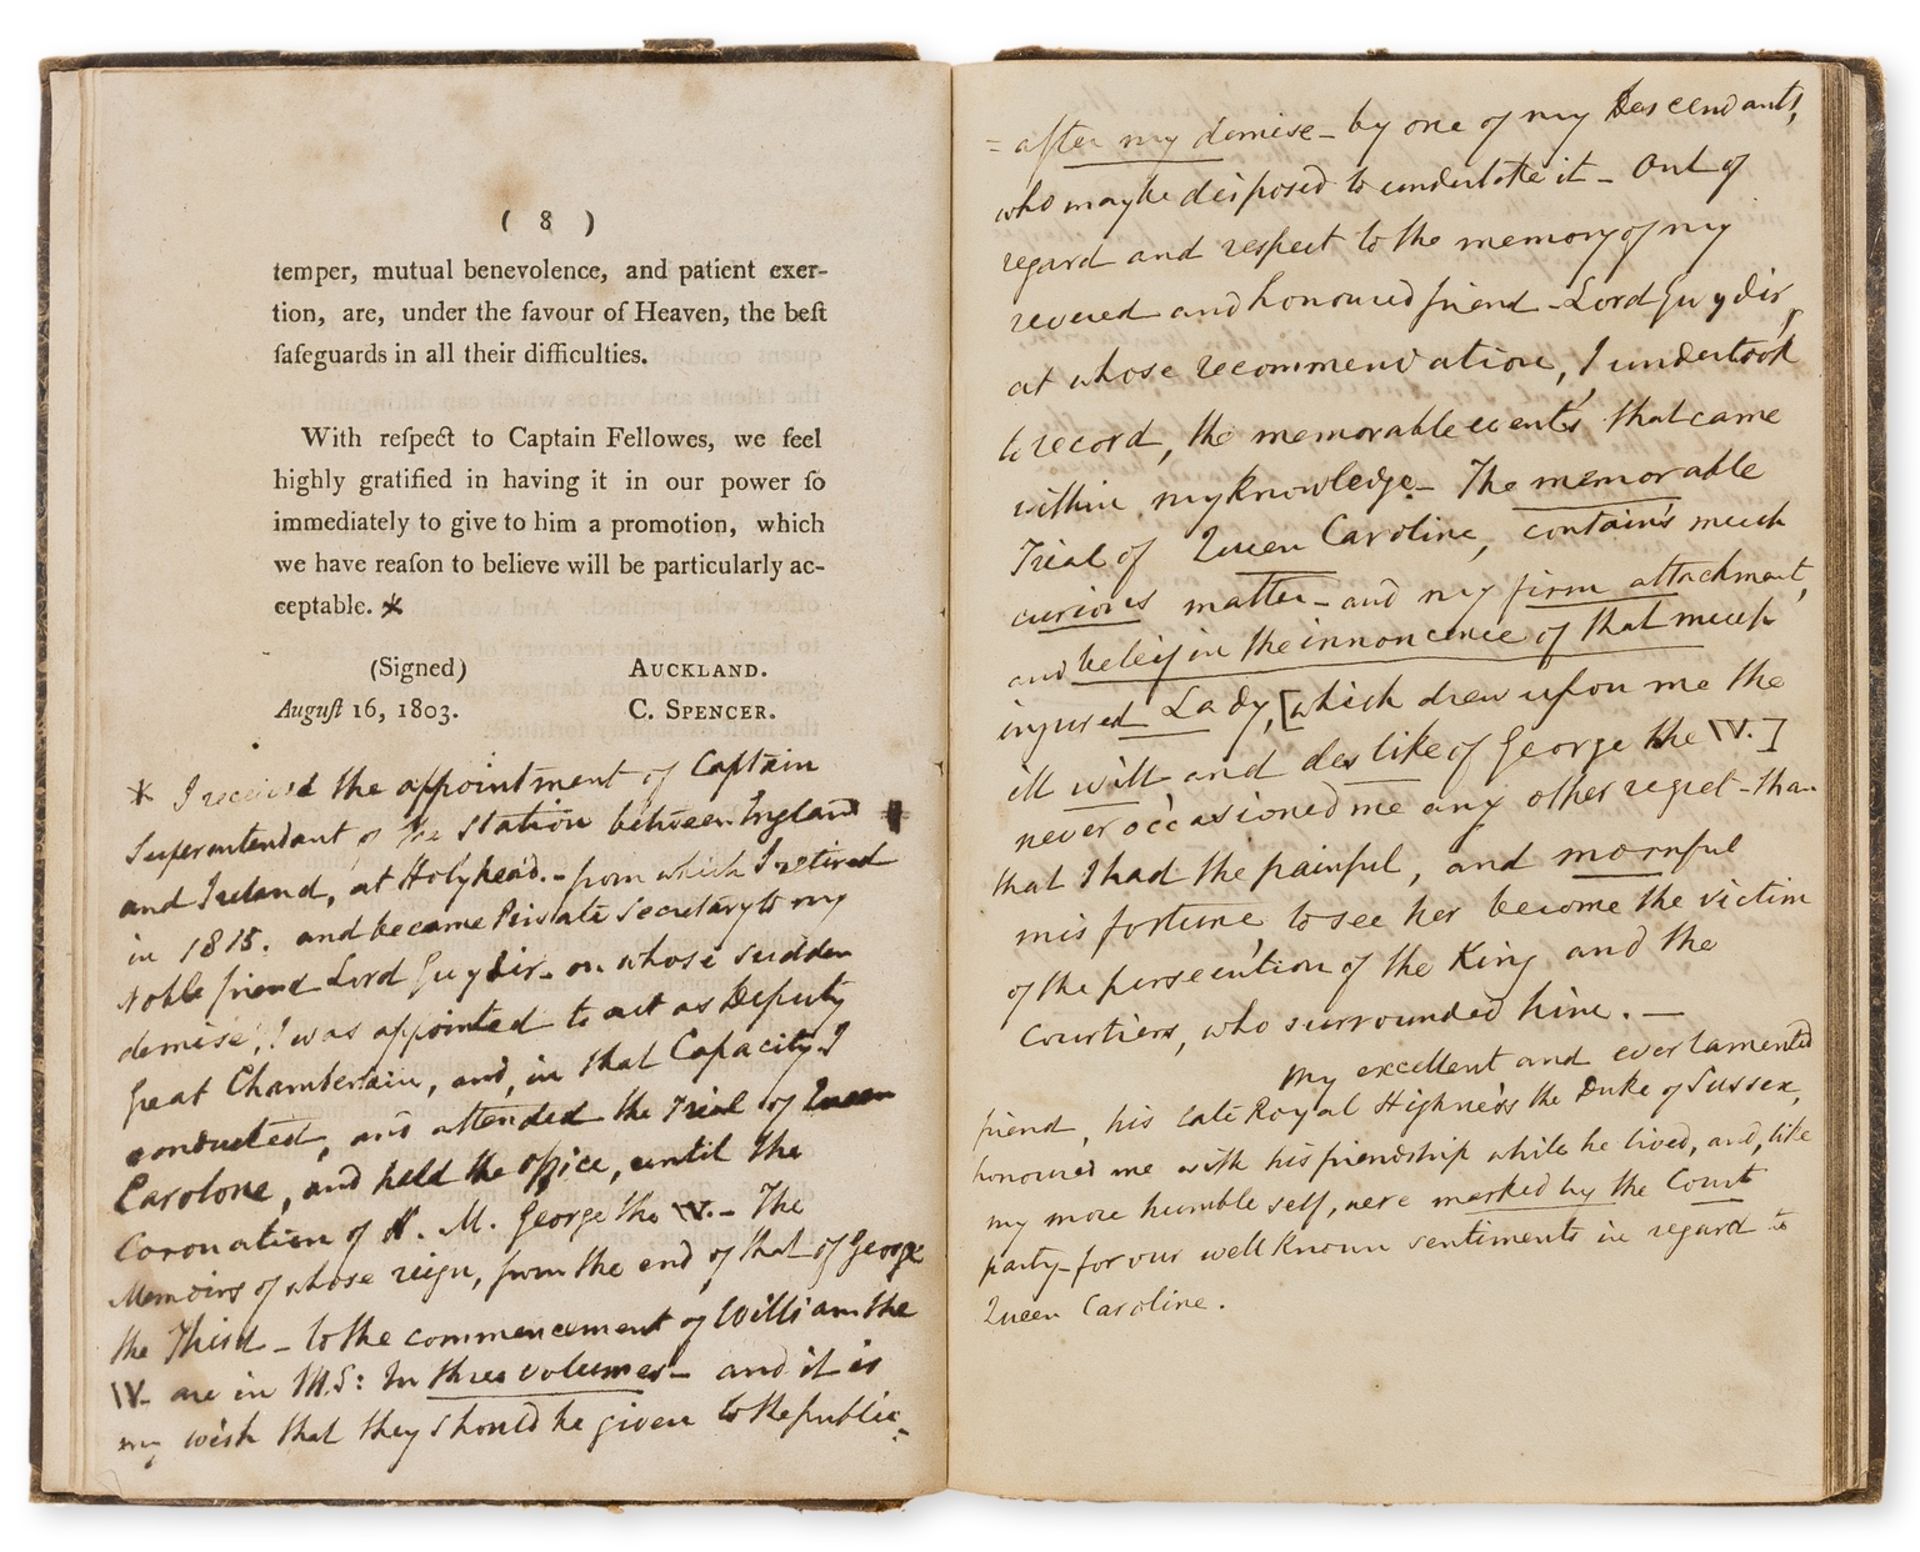 ( 8 )
temper, mutual benevolence, and patient exer-
tion, are, under the favour of Heaven, the beſt
ſafeguards in all their difficulties.
With reſpect to Captain Fellowes, we feel
highly gratified in having it in our power ſo
immediately to give to him a promotion, which
we have reaſon to believe will be particularly ac-
ceptable. *
(Signed) AUCKLAND.
Auguſt 16, 1803. C. SPENCER.
* I received the appointment of Captain
Superintendant of the Station between England
and Ireland, at Holyhead. - from which I retired
in 1815. and became Private Secretary to my
Noble friend Lord Guydir - on whose sudden
demise, I was appointed to act as Deputy
Great Chamberlain, and, in that Capacity I
conducted, and attended the Trial of Queen
Carolone, and held the office, until the
Coronation of H. M. George the IV. - The
Memoirs of whose reign, from the end of that of George
the Third - to the commencement of William the
IV - are in M.S: In three volumes - and it is
my wish that they should be given to the public -
= after my demise - by one of my Descendants,
who may be disposed to undertake it - Out of
regard and respect to the memory of my
revered and honoured friend - Lord Guydir,
at whose recommendation, I undertook
to record, the memorable events that came
within my knowledge. - The memorable
Trial of Queen Caroline, contain's much
curious matter - and my firm attachment,
and beleif in the innoncence of that much
injured Lady, [which drew upon me the
ill will and deslike of George the IV.]
never occasioned me any other regret - than
that I had the painful, and mornful
misfortune to see her become the victim
of the persecution of the King and the
Courtiers, who surrounded him. -
My excellent and ever lamented
friend, his late Royal Highness the Duke of Sussex,
honoured me with his friendship while he lived, and, like
my more humble self, were marked by the Court
party - for our well known sentiments in regard to
Queen Caroline.